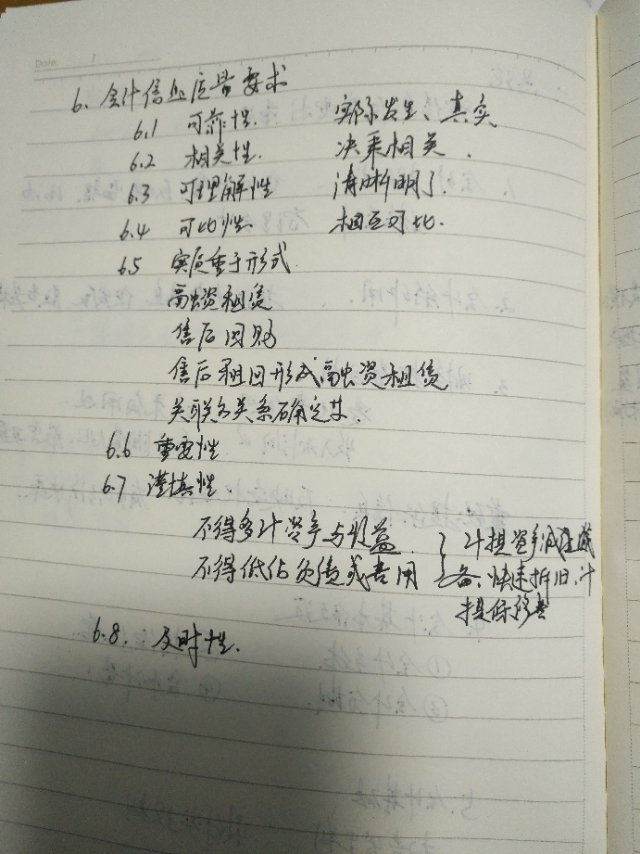 Date. 1
6. 会计信息质量要求
6.1 可靠性. 实际发生、真实
6.2 相关性. 决策相关.
6.3 可理解性 清晰明了.
6.4 可比性. 相互可比.
6.5 实质重于形式.
融资租赁
售后回购
售后租回形成融资租赁
关联方关系确定等.
6.6 重要性
6.7 谨慎性
不得多计资产与收益. } 计提资产减值减
不得低估负债或费用 备、快速折旧、计
提保修费
6.8. 及时性.